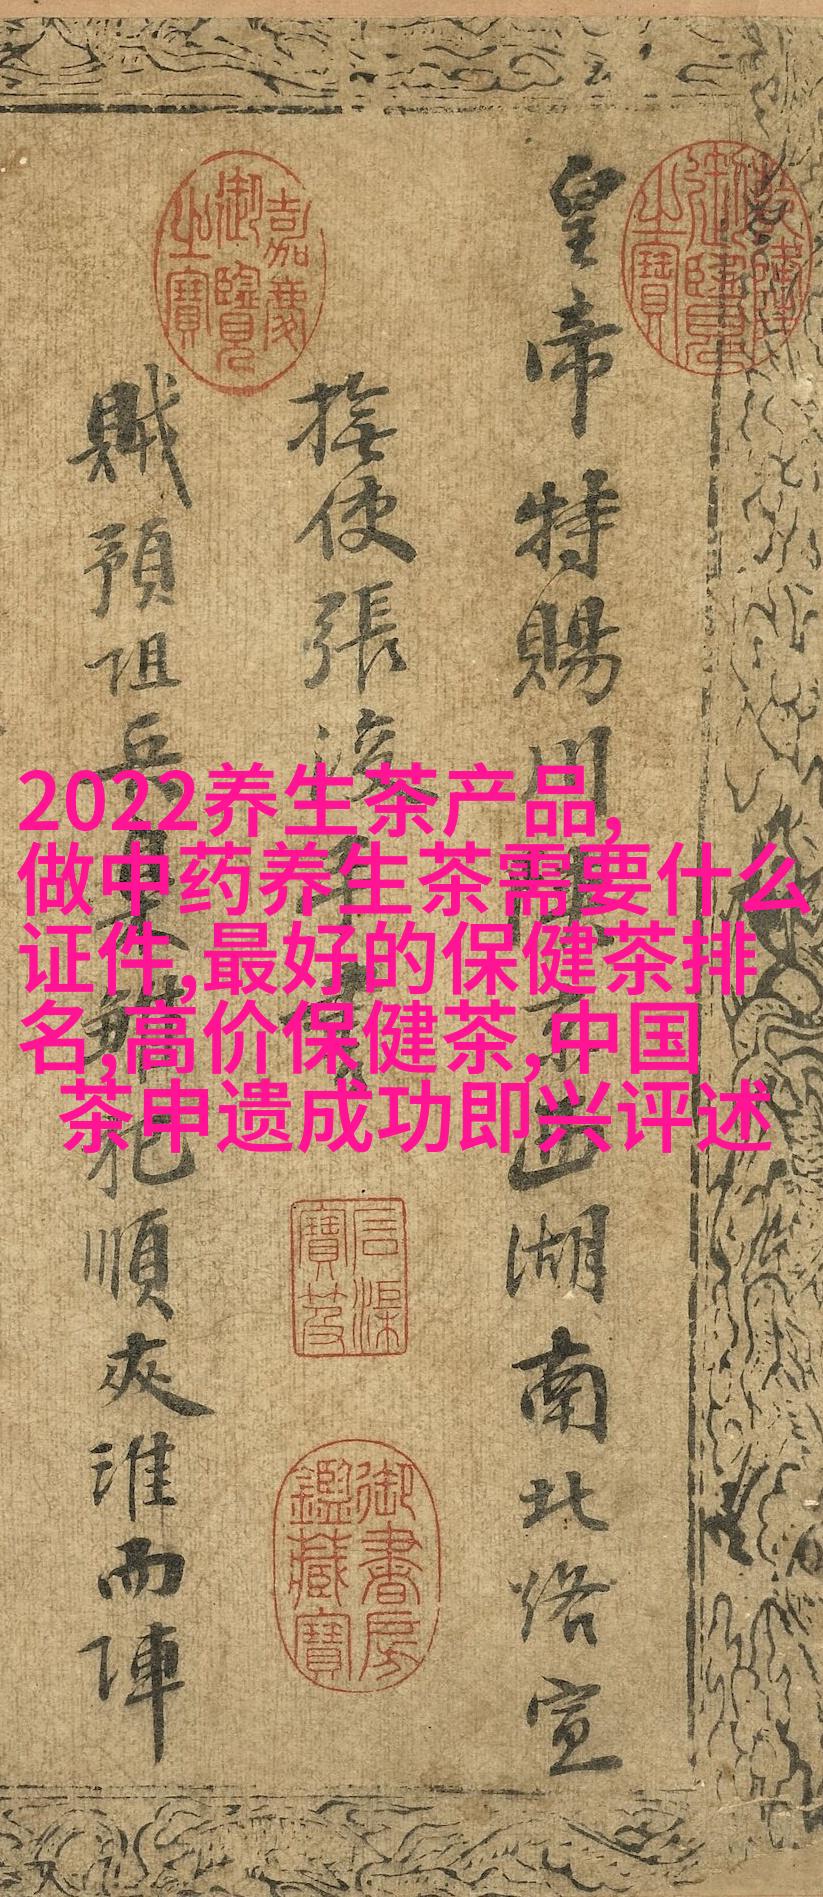 皇帝特賜川陝京西湖南北路宣
撫使張浚
賊預阻兵犯順夾淮而陣
乾隆御覽之寶
嘉慶御覽之寶
石渠寶笈
御書房鑑藏寶
2022养生茶产品,
做中药养生茶需要什么
证件,最好的保健茶排
名,高价保健茶,中国
茶申遗成功即兴评述